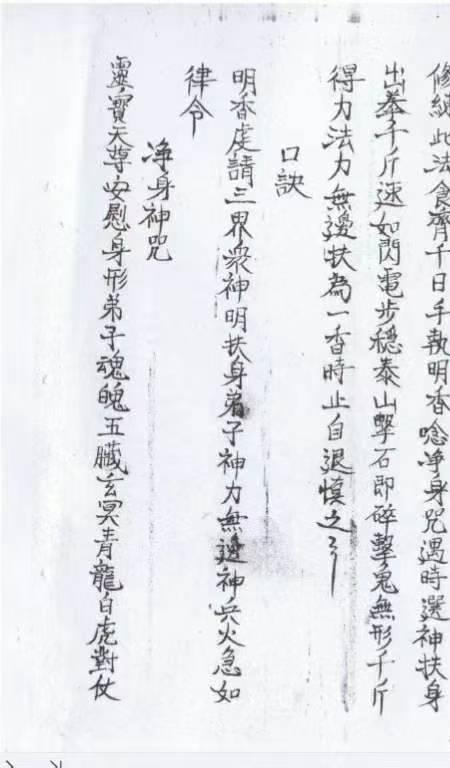 修練此法食齊千日手執明香唸净身咒遇時選神扶身
出拳千斤速如閃電步穩泰山擊石即碎擊鬼無形千斤
得力法力無邊扶為一香時止自退慎之
口訣
明香虔請三界眾神明扶身弟子神力無邊神兵火急如
律令
净身神咒
靈寶天尊安慰身形弟子魂魄五臟玄冥青龍白虎對仗